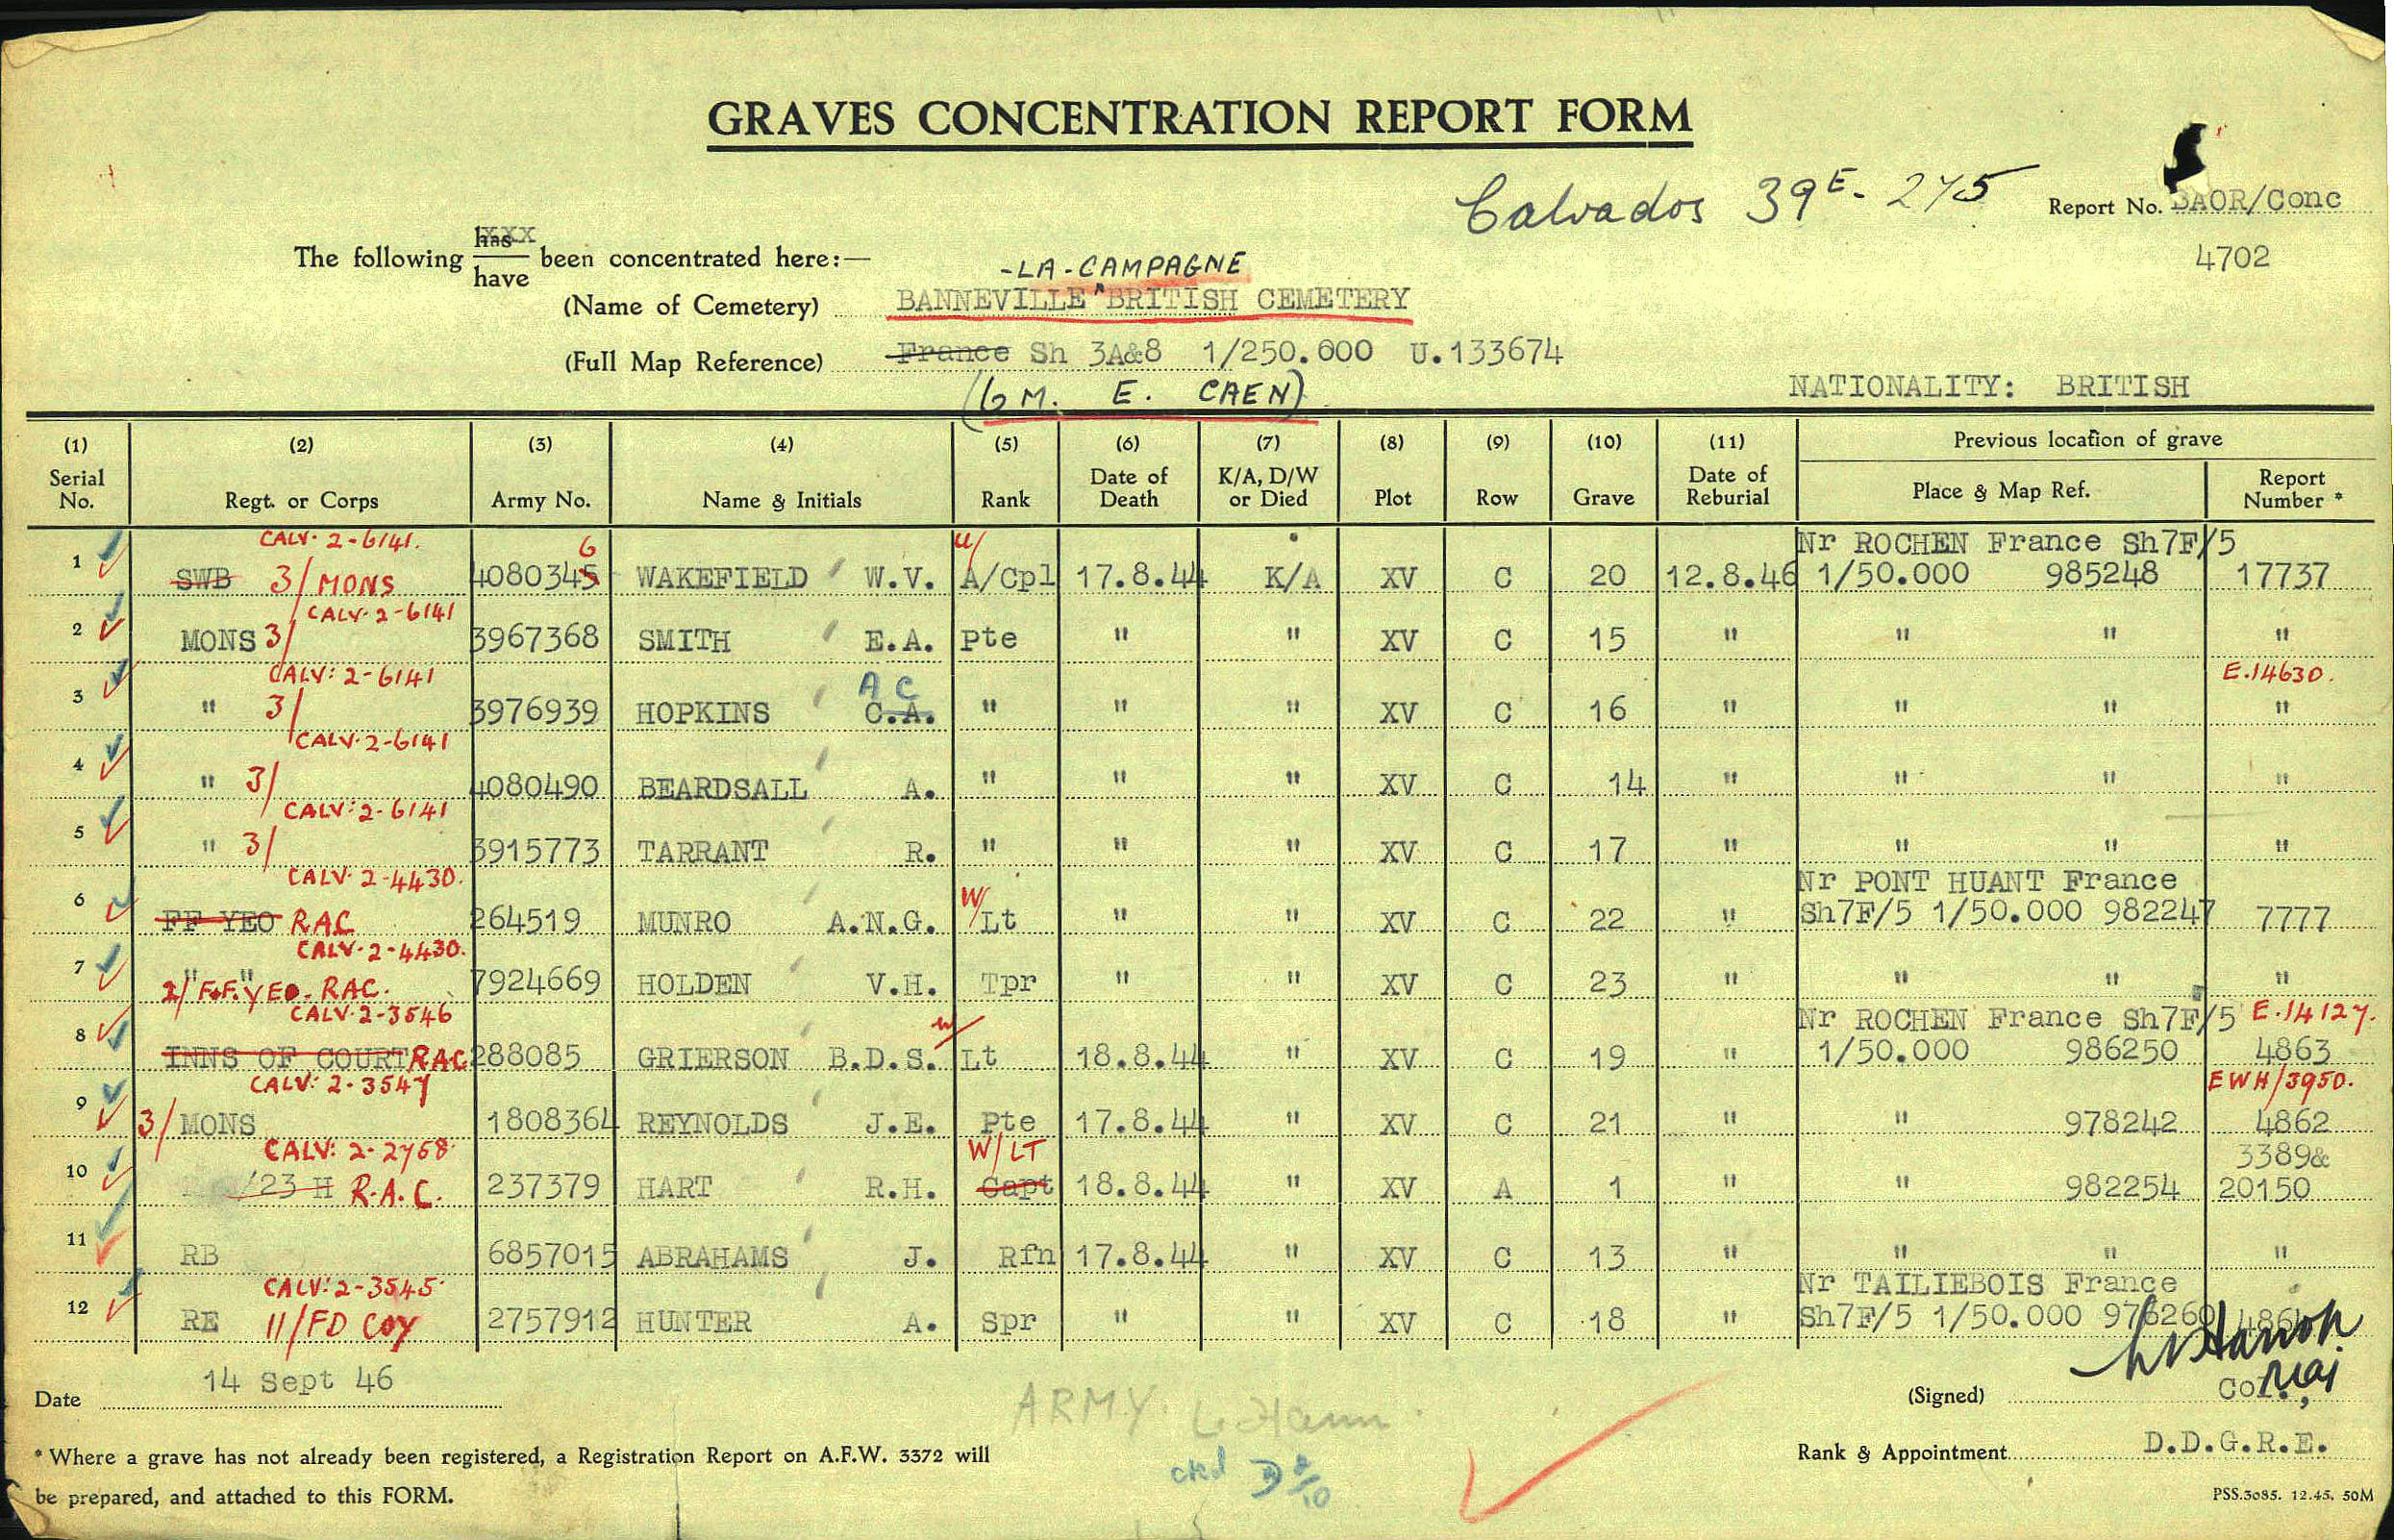 GRAVES CONCENTRATION REPORT FORM
Calvados 39E- 275
Report No. BAOR/Conc
4702
The following has XXX / have been concentrated here:—
-LA-CAMPAGNE
(Name of Cemetery) BANNEVILLE ^ BRITISH CEMETERY
(Full Map Reference) France Sh 3A&8 1/250.000 U.133674
(6 M. E. CAEN)
NATIONALITY: BRITISH
(1) (2) (3) (4) (5) (6) (7) (8) (9) (10) (11) Previous location of grave
Serial No. Regt. or Corps Army No. Name & Initials Rank Date of Death K/A, D/W or Died Plot Row Grave Date of Reburial Place & Map Ref. Report Number *
CALV. 2-6141. 6 Nr ROCHEN France Sh7F/5
1 SWB 3/MONS 4080345 WAKEFIELD W.V. A/Cpl 17.8.44 K/A XV C 20 12.8.46 1/50.000 985248 17737
CALV. 2-6141
2 MONS 3/ 3967368 SMITH E.A. Pte " " XV C 15 " " " "
CALV: 2-6141 A C E.14630.
3 " 3/ 3976939 HOPKINS C.A. " " " XV C 16 " " " "
CALV. 2-6141
4 " 3/ 4080490 BEARDSALL A. " " " XV C 14 " " " "
CALV: 2-6141
5 " 3/ 3915773 TARRANT R. " " " XV C 17 " " " "
CALV. 2-4430. W/ Nr PONT HUANT France
6 FF YEO RAC 264519 MUNRO A.N.G. Lt " " XV C 22 " Sh7F/5 1/50.000 982247 7777
CALV. 2-4430.
7 " " 2/F.F.YEO. RAC. 7924669 HOLDEN V.H. Tpr " " XV C 23 " " " "
CALV. 2-3546 w/ Nr ROCHEN France Sh7F/5 E.14127.
8 INNS OF COURT RAC 288085 GRIERSON B.D.S. Lt 18.8.44 " XV C 19 " 1/50.000 986250 4863
CALV: 2-3547 EWH/3950.
9 3/ MONS 1808364 REYNOLDS J.E. Pte 17.8.44 " XV C 21 " " 978242 4862
CALV: 2-2768. W/LT 3389&
10 /23 H R.A.C. 237379 HART R.H. Capt 18.8.44 " XV A 1 " " 982254 20150
11 RB 6857015 ABRAHAMS J. Rfn 17.8.44 " XV C 13 " " " "
CALV: 2-3545. Nr TAILIEBOIS France
12 RE 11/FD COY 2757912 HUNTER A. Spr " " XV C 18 " Sh7F/5 1/50.000 976260
Date 14 Sept 46
ARMY.
(Signed) Col., Maj
* Where a grave has not already been registered, a Registration Report on A.F.W. 3372 will
be prepared, and attached to this FORM.
Rank & Appointment D.D.G.R.E.
PSS.3085. 12.45. 50M